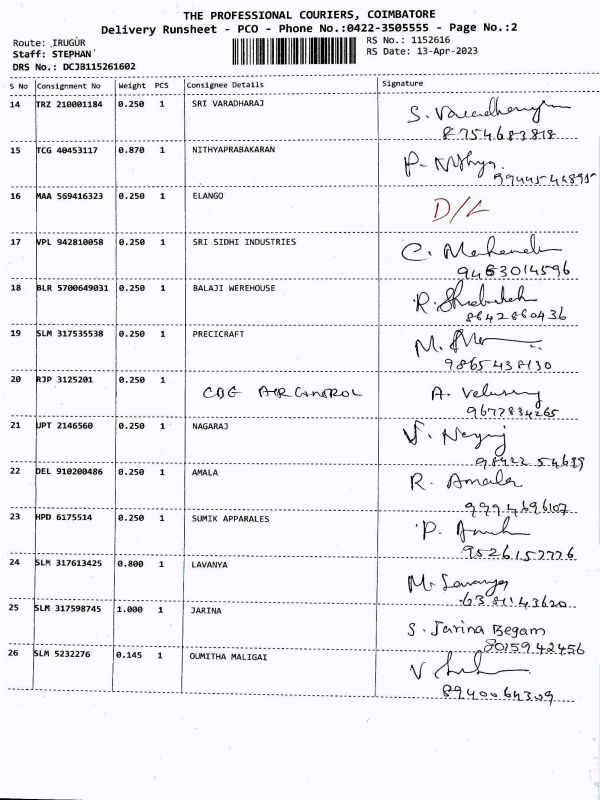 THE PROFESSIONAL COURIERS, COIMBATORE
Delivery Runsheet - PCO - Phone No.:0422-3505555 - Page No.:2
Route: IRUGUR
RS No.: 1152616
Staff: STEPHAN
RS Date: 13-Apr-2023
DRS No.: DCJB115261602
S No Consignment No Weight PCS Consignee Details Signature
14 TRZ 210001184 0.250 1 SRI VARADHARAJ S.
8754683818
15 TCG 40453117 0.870 1 NITHYAPRABAKARAN P. Nithya
16 MAA 569416323 0.250 1 ELANGO D/L
17 VPL 942810058 0.250 1 SRI SIDHI INDUSTRIES C.
9463014596
18 BLR 5700649031 0.250 1 BALAJI WEREHOUSE R.
8642860436
19 SLM 317535538 0.250 1 PRECICRAFT M.
9865438130
20 RJP 3125201 0.250 1 CBG AIR CONTROL A. Velusamy
9677834265
21 UPT 2146560 0.250 1 NAGARAJ V. Nagaraj
98422 54689
22 DEL 910200486 0.250 1 AMALA R. Amala
9994696107
23 HPD 6175514 0.250 1 SUMIK APPARALES P.
9526157776
24 SLM 317613425 0.800 1 LAVANYA M. Lavanya
6381143620
25 SLM 317598745 1.000 1 JARINA S. Jarina Begam
8015942456
26 SLM 5232276 0.145 1 OUMITHA MALIGAI V
8940064309